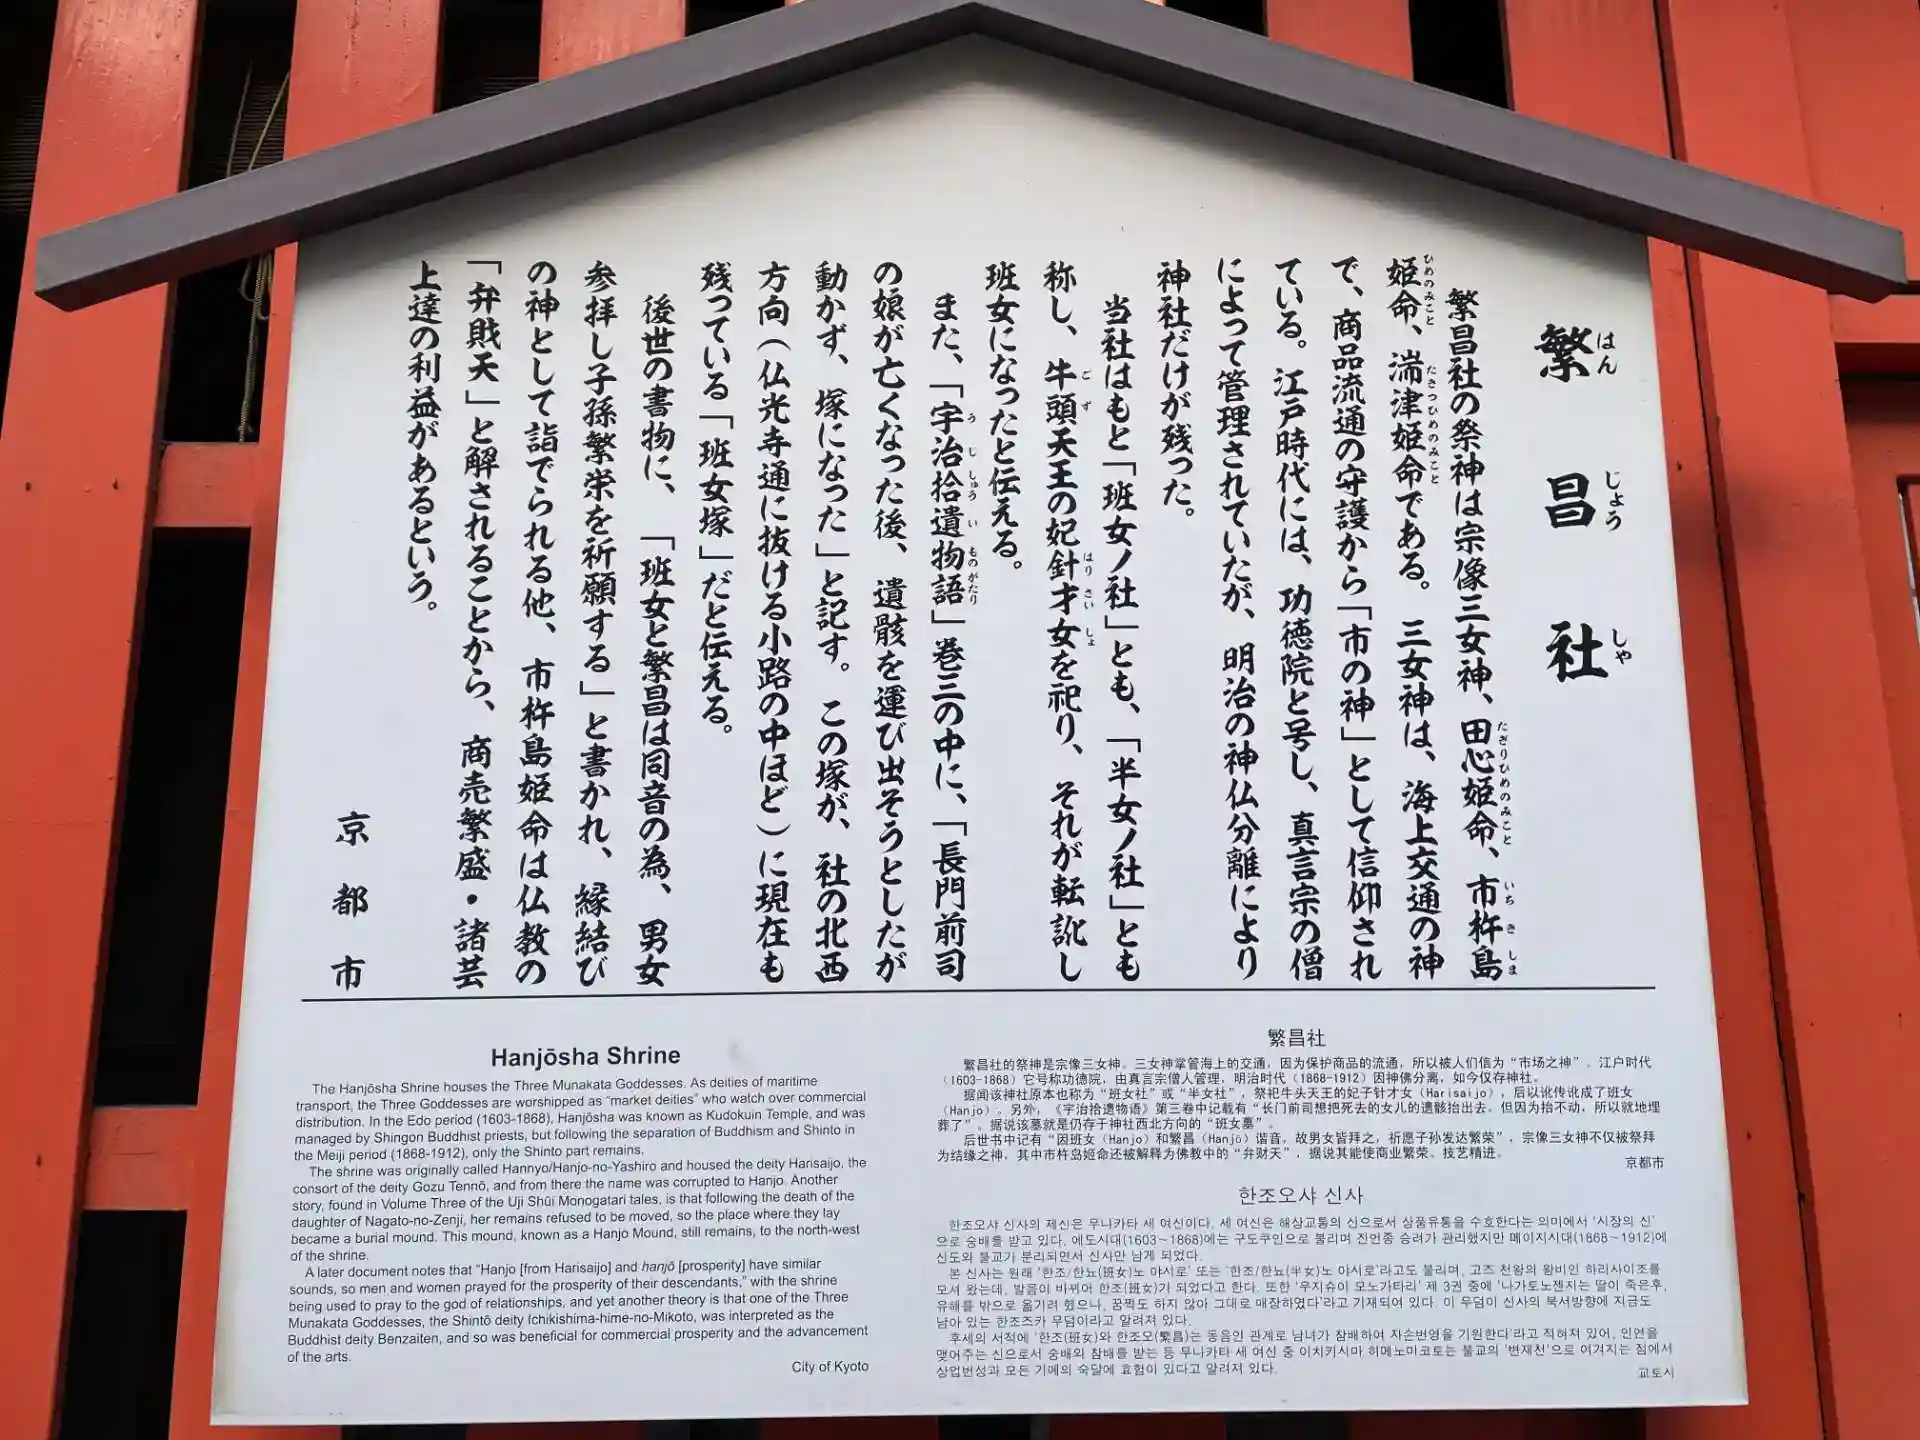 繁昌社
はんじょうしゃ
繁昌社の祭神は宗像三女神、田心姫命、市杵島
たぎりひめのみこと いちきしま
姫命、湍津姫命である。三女神は、海上交通の神
ひめのみこと たきつひめのみこと
で、商品流通の守護から「市の神」として信仰され
ている。江戸時代には、功徳院と号し、真言宗の僧
によって管理されていたが、明治の神仏分離により
神社だけが残った。
当社はもと「班女ノ社」とも、「半女ノ社」とも
称し、牛頭天王の妃針才女を祀り、それが転訛し
ごず はりさいじょ
班女になったと伝える。
また、「宇治拾遺物語」巻三の中に、「長門前司
うじしゅういものがたり
の娘が亡くなった後、遺骸を運び出そうとしたが
動かず、塚になった」と記す。この塚が、社の北西
方向（仏光寺通に抜ける小路の中ほど）に現在も
残っている「班女塚」だと伝える。
後世の書物に、「班女と繁昌は同音の為、男女
参拝し子孫繁栄を祈願する」と書かれ、縁結び
の神として詣でられる他、市杵島姫命は仏教の
「弁財天」と解されることから、商売繁盛・諸芸
上達の利益があるという。
京都市
Hanjōsha Shrine
The Hanjōsha Shrine houses the Three Munakata Goddesses. As deities of maritime
transport, the Three Goddesses are worshipped as “market deities” who watch over commercial
distribution. In the Edo period (1603-1868), Hanjōsha was known as Kudokuin Temple, and was
managed by Shingon Buddhist priests, but following the separation of Buddhism and Shinto in
the Meiji period (1868-1912), only the Shinto part remains.
The shrine was originally called Hannyo/Hanjo-no-Yashiro and housed the deity Harisaijo, the
consort of the deity Gozu Tennō, and from there the name was corrupted to Hanjo. Another
story, found in Volume Three of the Uji Shūi Monogatari tales, is that following the death of the
daughter of Nagato-no-Zenji, her remains refused to be moved, so the place where they lay
became a burial mound. This mound, known as a Hanjo Mound, still remains, to the north-west
of the shrine.
A later document notes that “Hanjo [from Harisaijo] and hanjō [prosperity] have similar
sounds, so men and women prayed for the prosperity of their descendants,” with the shrine
being used to pray to the god of relationships, and yet another theory is that one of the Three
Munakata Goddesses, the Shintō deity Ichikishima-hime-no-Mikoto, was interpreted as the
Buddhist deity Benzaiten, and so was beneficial for commercial prosperity and the advancement
of the arts.
City of Kyoto
繁昌社
繁昌社的祭神是宗像三女神。三女神掌管海上的交通，因为保护商品的流通，所以被人们信为“市场之神”。江户时代
（1603-1868）它号称功德院，由真言宗僧人管理，明治时代（1868-1912）因神佛分离，如今仅存神社。
据闻该神社原本也称为“班女社”或“半女社”，祭祀牛头天王的妃子针才女（Harisaijo），后以讹传讹成了班女
（Hanjo）。另外，《宇治拾遗物语》第三卷中记载有“长门前司想把死去的女儿的遗骸抬出去，但因为抬不动，所以就地埋
葬了”。据说该墓就是仍存于神社西北方向的“班女墓”。
后世书中记有“因班女（Hanjo）和繁昌（Hanjō）谐音，故男女皆拜之，祈愿子孙发达繁荣”，宗像三女神不仅被祭拜
为结缘之神，其中市杵岛姬命还被解释为佛教中的“弁财天”，据说其能使商业繁荣、技艺精进。
京都市
한조오샤 신사
한조오샤 신사의 제신은 무나카타 세 여신이다. 세 여신은 해상교통의 신으로서 상품유통을 수호한다는 의미에서 ‘시장의 신’
으로 숭배를 받고 있다. 에도시대(1603~1868)에는 구도쿠인으로 불리며 진언종 승려가 관리했지만 메이지시대(1868~1912)에
신도와 불교가 분리되면서 신사만 남게 되었다.
본 신사는 원래 ‘한조/한뇨(班女)노 야시로’ 또는 ‘한조/한뇨(半女)노 야시로’라고도 불리며, 고즈 천왕의 왕비인 하리사이조를
모셔 왔는데, 발음이 바뀌어 한조(班女)가 되었다고 한다. 또한 ‘우지슈이 모노가타리’ 제 3권 중에 ‘나가토노젠지는 딸이 죽은후,
유해를 밖으로 옮기려 했으나, 꿈쩍도 하지 않아 그대로 매장하였다’라고 기재되어 있다. 이 무덤이 신사의 북서방향에 지금도
남아 있는 한조즈카 무덤이라고 알려져 있다.
후세의 서적에 ‘한조(班女)와 한조오(繁昌)는 동음인 관계로 남녀가 참배하여 자손번영을 기원한다’라고 적혀져 있어, 인연을
맺어주는 신으로서 숭배와 참배를 받는 등 무나카타 세 여신 중 이치키시마 히메노미코토는 불교의 ‘변재천’으로 여겨지는 점에서
상업번성과 모든 기예의 숙달에 효험이 있다고 알려져 있다.
교토시